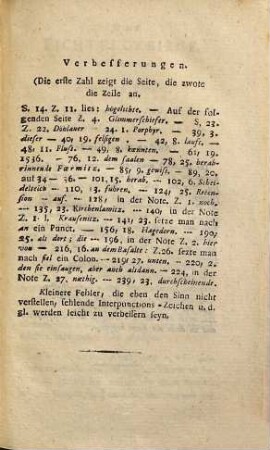 Verbesserungen.
(Die erste Zahl zeigt die Seite, die zwote
die Zeile an.
S. 14. Z. 11. lies: högelichte. — Auf der fol-
genden Seite Z. 4. Glimmerschiefer. — S. 23.
Z. 22. Dünlaner — 24. 1. Porphyr. — 39, 3.
dieser — 40, 19. felsigen — 42, 8. laufs, —
48, 11. Flusse — 49, 8. kannten. — 61, 19.
1536. — 76, 12. dem saalen — 78, 25. herab-
rinnende — 85, 9. gewiss. — 89, 20.
auf 34 — 36. — 101, 15. herab. — 102, 6. Schei-
delteich — 110, 13. fuhren. — 124, 25. Reten-
sion — auf. — 128, in der Note. Z. 1. noch.
— 135, 23. Kirchenlamitz. — 140, in der Note
Z. 1. Krausemitz. — 141, 23. setze man nach
an ein Punct. — 156, 18. Hagedorn. — 190,
25. als dort; die — 196, in der Note Z. 2. hier
von — 216, 16. an dem Basalte: Z. 26. setze man
nach sei ein Colon. — 219, 27. unten. — 220, 2.
den sie einsaugen, aber auch alsdann. — 224, in der
Note Z. 27. nöthig. — 239, 23. durchscheinende.
Kleinere Fehler, die eben den Sinn nicht
verstellen, fehlende Interpunctions-Zeichen u. d.
gl. werden leicht zu verbessern seyn.